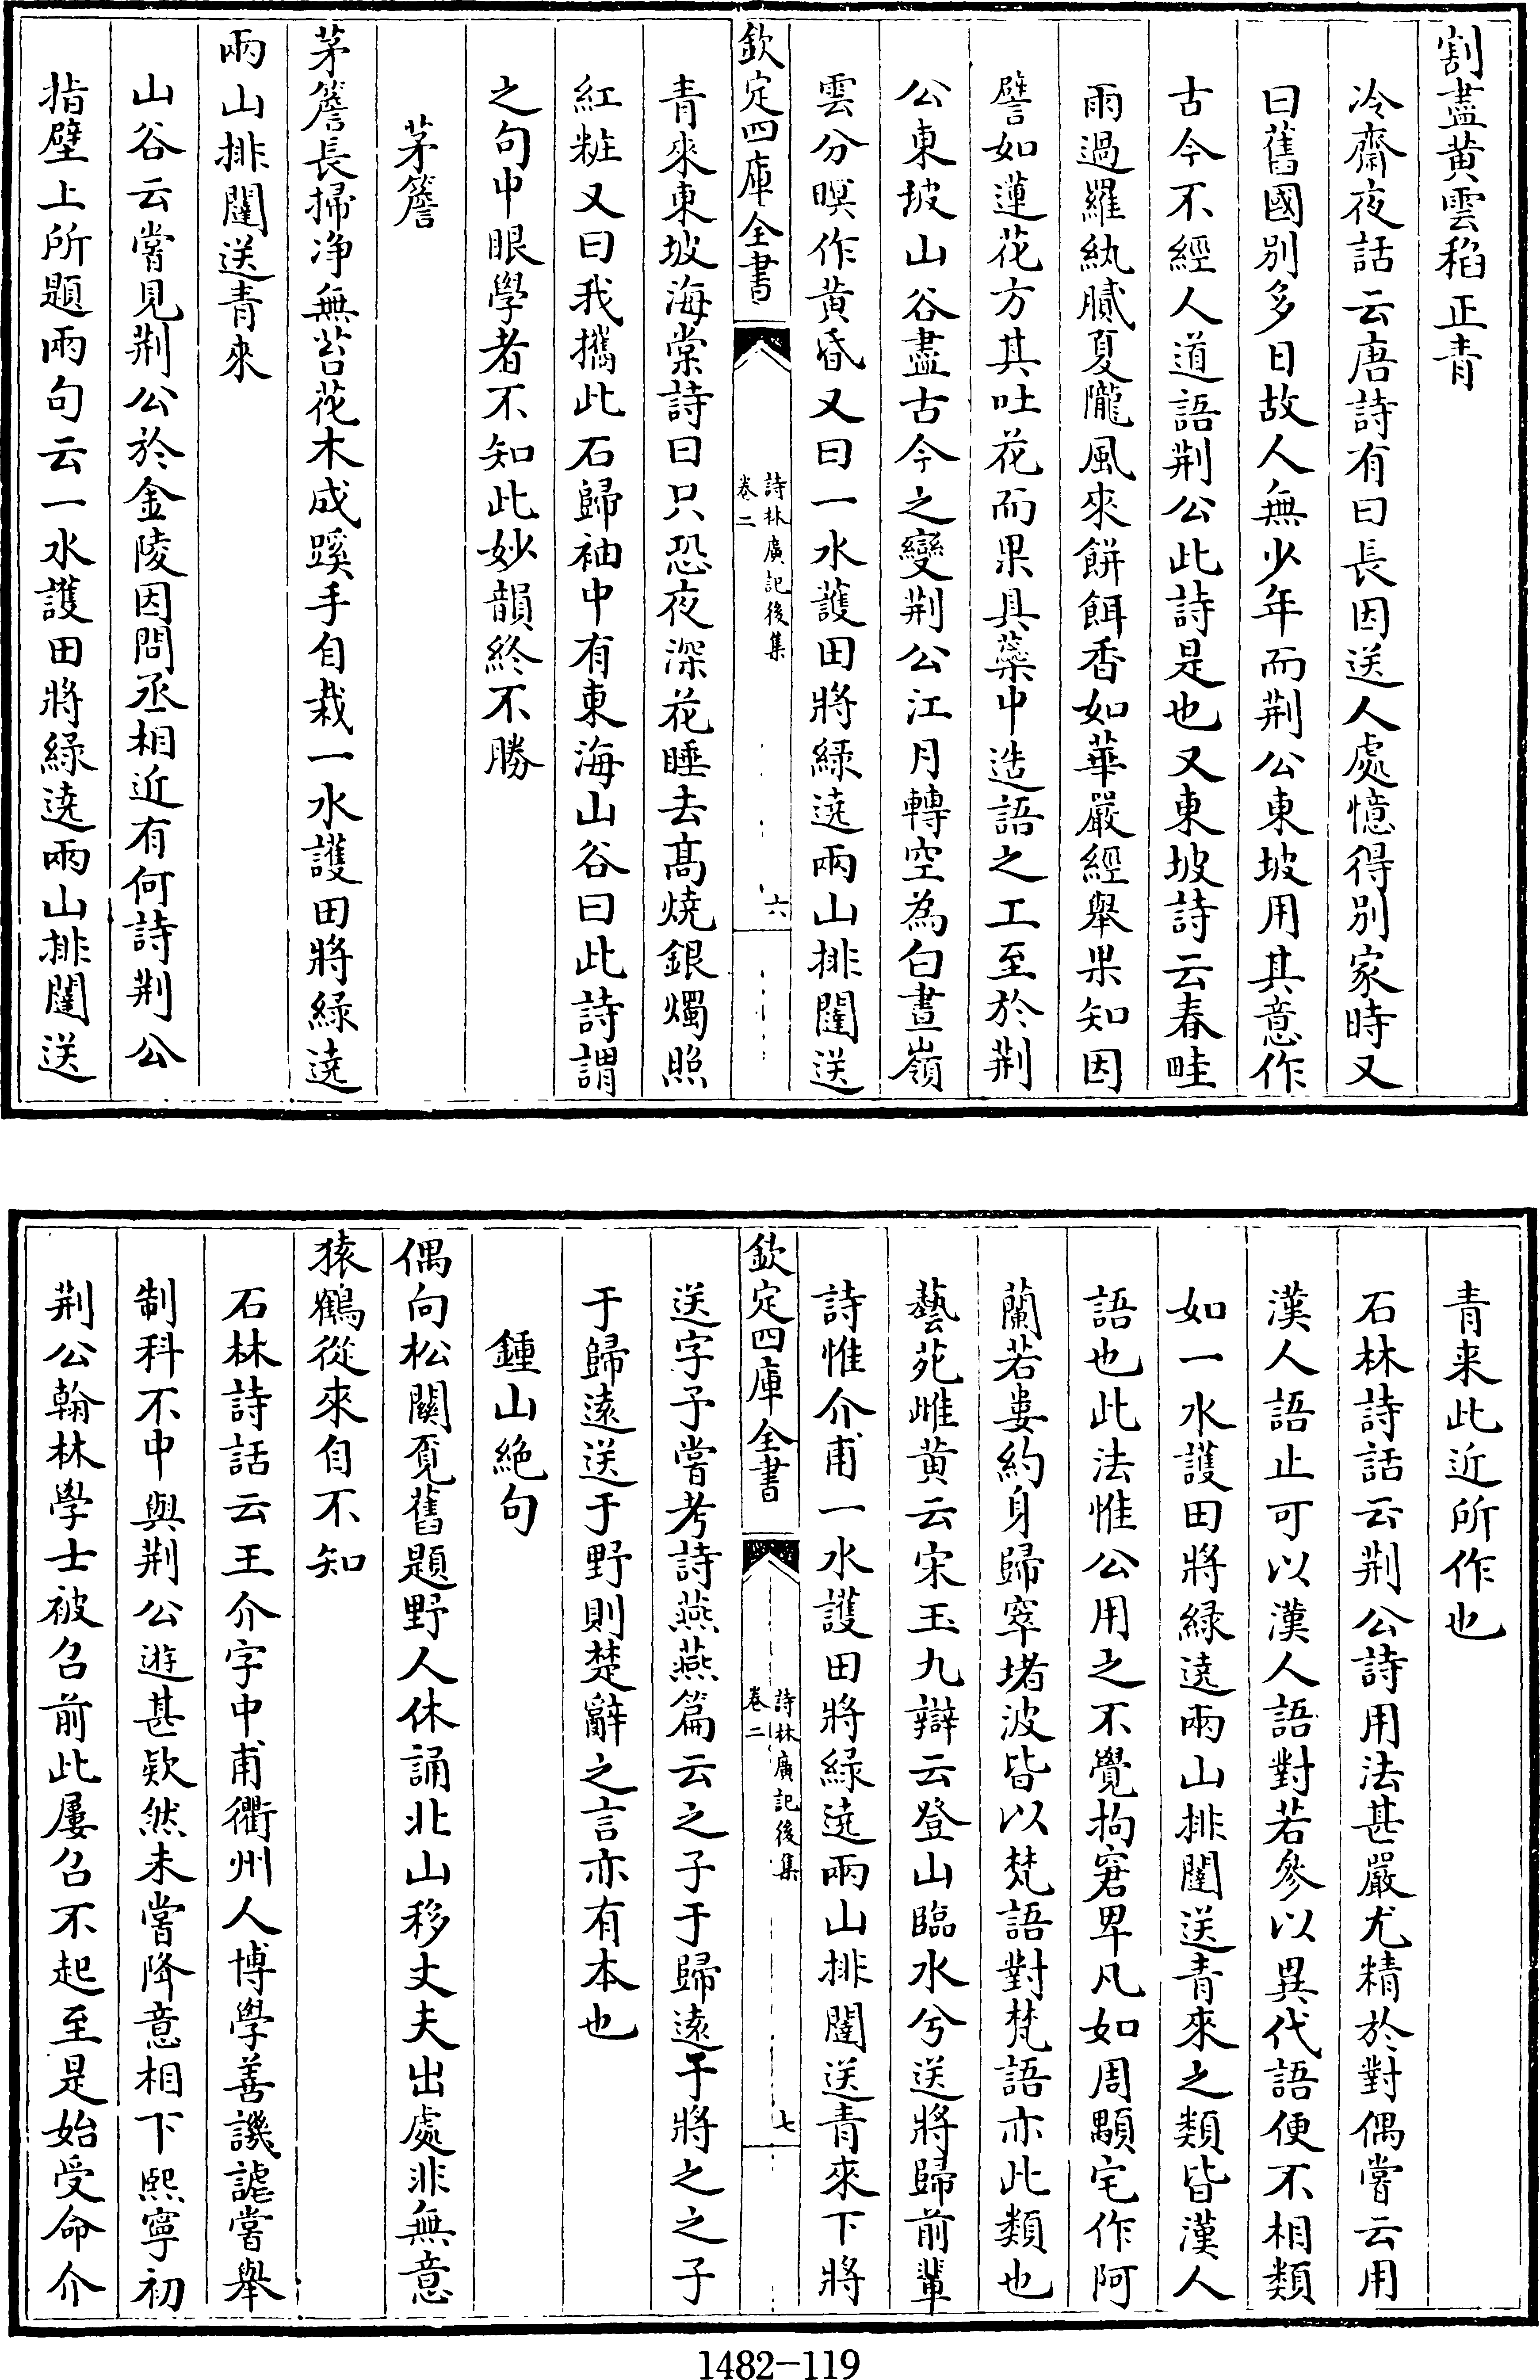 割盡黄雲稻正青
冷齋夜話云唐詩有曰長因送人處憶得别家時又
曰舊國别多日故人無少年而荆公東坡用其意作
古今不經人道語荆公此詩是也又東坡詩云春畦
雨過羅紈膩夏隴風來餅餌香如華嚴經舉果知因
譬如蓮花方其吐花而果具蘂中造語之工至於荆
公東坡山谷盡古今之變荆公江月轉空為白晝嶺
雲分暝作黄昏又曰一水護田將緑遶兩山排闥送
欽定四庫全書
詩林廣記後集
卷二
六
青來東坡海棠詩曰只恐夜深花睡去髙燒銀燭照
紅粧又曰我攜此石歸袖中有東海山谷曰此詩謂
之句中眼學者不知此妙韻終不勝
茅簷
茅簷長掃浄無苔花木成蹊手自栽一水護田將緑遶
兩山排闥送青來
山谷云嘗見荆公於金陵因問丞相近有何詩荆公
指壁上所題兩句云一水護田將緑遶兩山排闥送
青来此近所作也
石林詩話云荆公詩用法甚嚴尤精於對偶嘗云用
漢人語止可以漢人語對若參以異代語便不相類
如一水護田將緑遶兩山排闥送青來之類皆漢人
語也此法惟公用之不覺拘窘卑凡如周顒宅作阿
蘭若婁約身歸窣堵波皆以梵語對梵語亦此類也
藝苑雌黄云宋玉九辯云登山臨水兮送將歸前輩
詩惟介甫一水護田將緑遶兩山排闥送青來下將
欽定四庫全書
詩林廣記後集
卷二
七
送字予嘗考詩燕燕篇云之子于歸遠于將之之子
于歸遠送于野則楚辭之言亦有本也
鍾山絶句
偶向松關覔舊題野人休誦北山移丈夫出處非無意
猿鶴從來自不知
石林詩話云王介字中甫衢州人博學善譏謔嘗舉
制科不中與荆公遊甚欵然未嘗降意相下熙寧初
荆公翰林學士被召前此屢召不起至是始受命介
1482-119